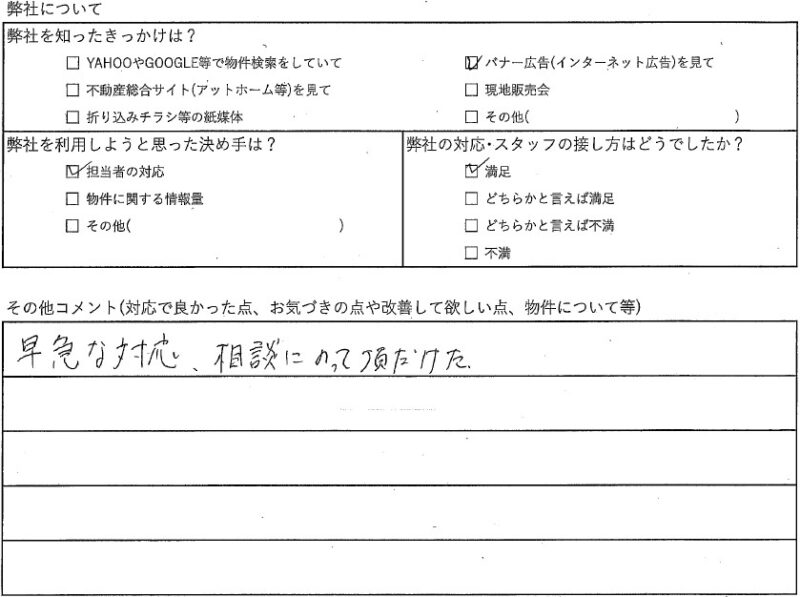 弊社について
弊社を知ったきっかけは？
□ YAHOOやGOOGLE等で物件検索をしていて
☑ バナー広告(インターネット広告)を見て
□ 不動産総合サイト(アットホーム等)を見て
□ 現地販売会
□ 折り込みチラシ等の紙媒体
□ その他( )
弊社を利用しようと思った決め手は？
☑ 担当者の対応
□ 物件に関する情報量
□ その他( )
弊社の対応・スタッフの接し方はどうでしたか？
☑ 満足
□ どちらかと言えば満足
□ どちらかと言えば不満
□ 不満
その他コメント(対応で良かった点、お気づきの点や改善して欲しい点、物件について等)
早急な対応、相談にのって頂だけた.